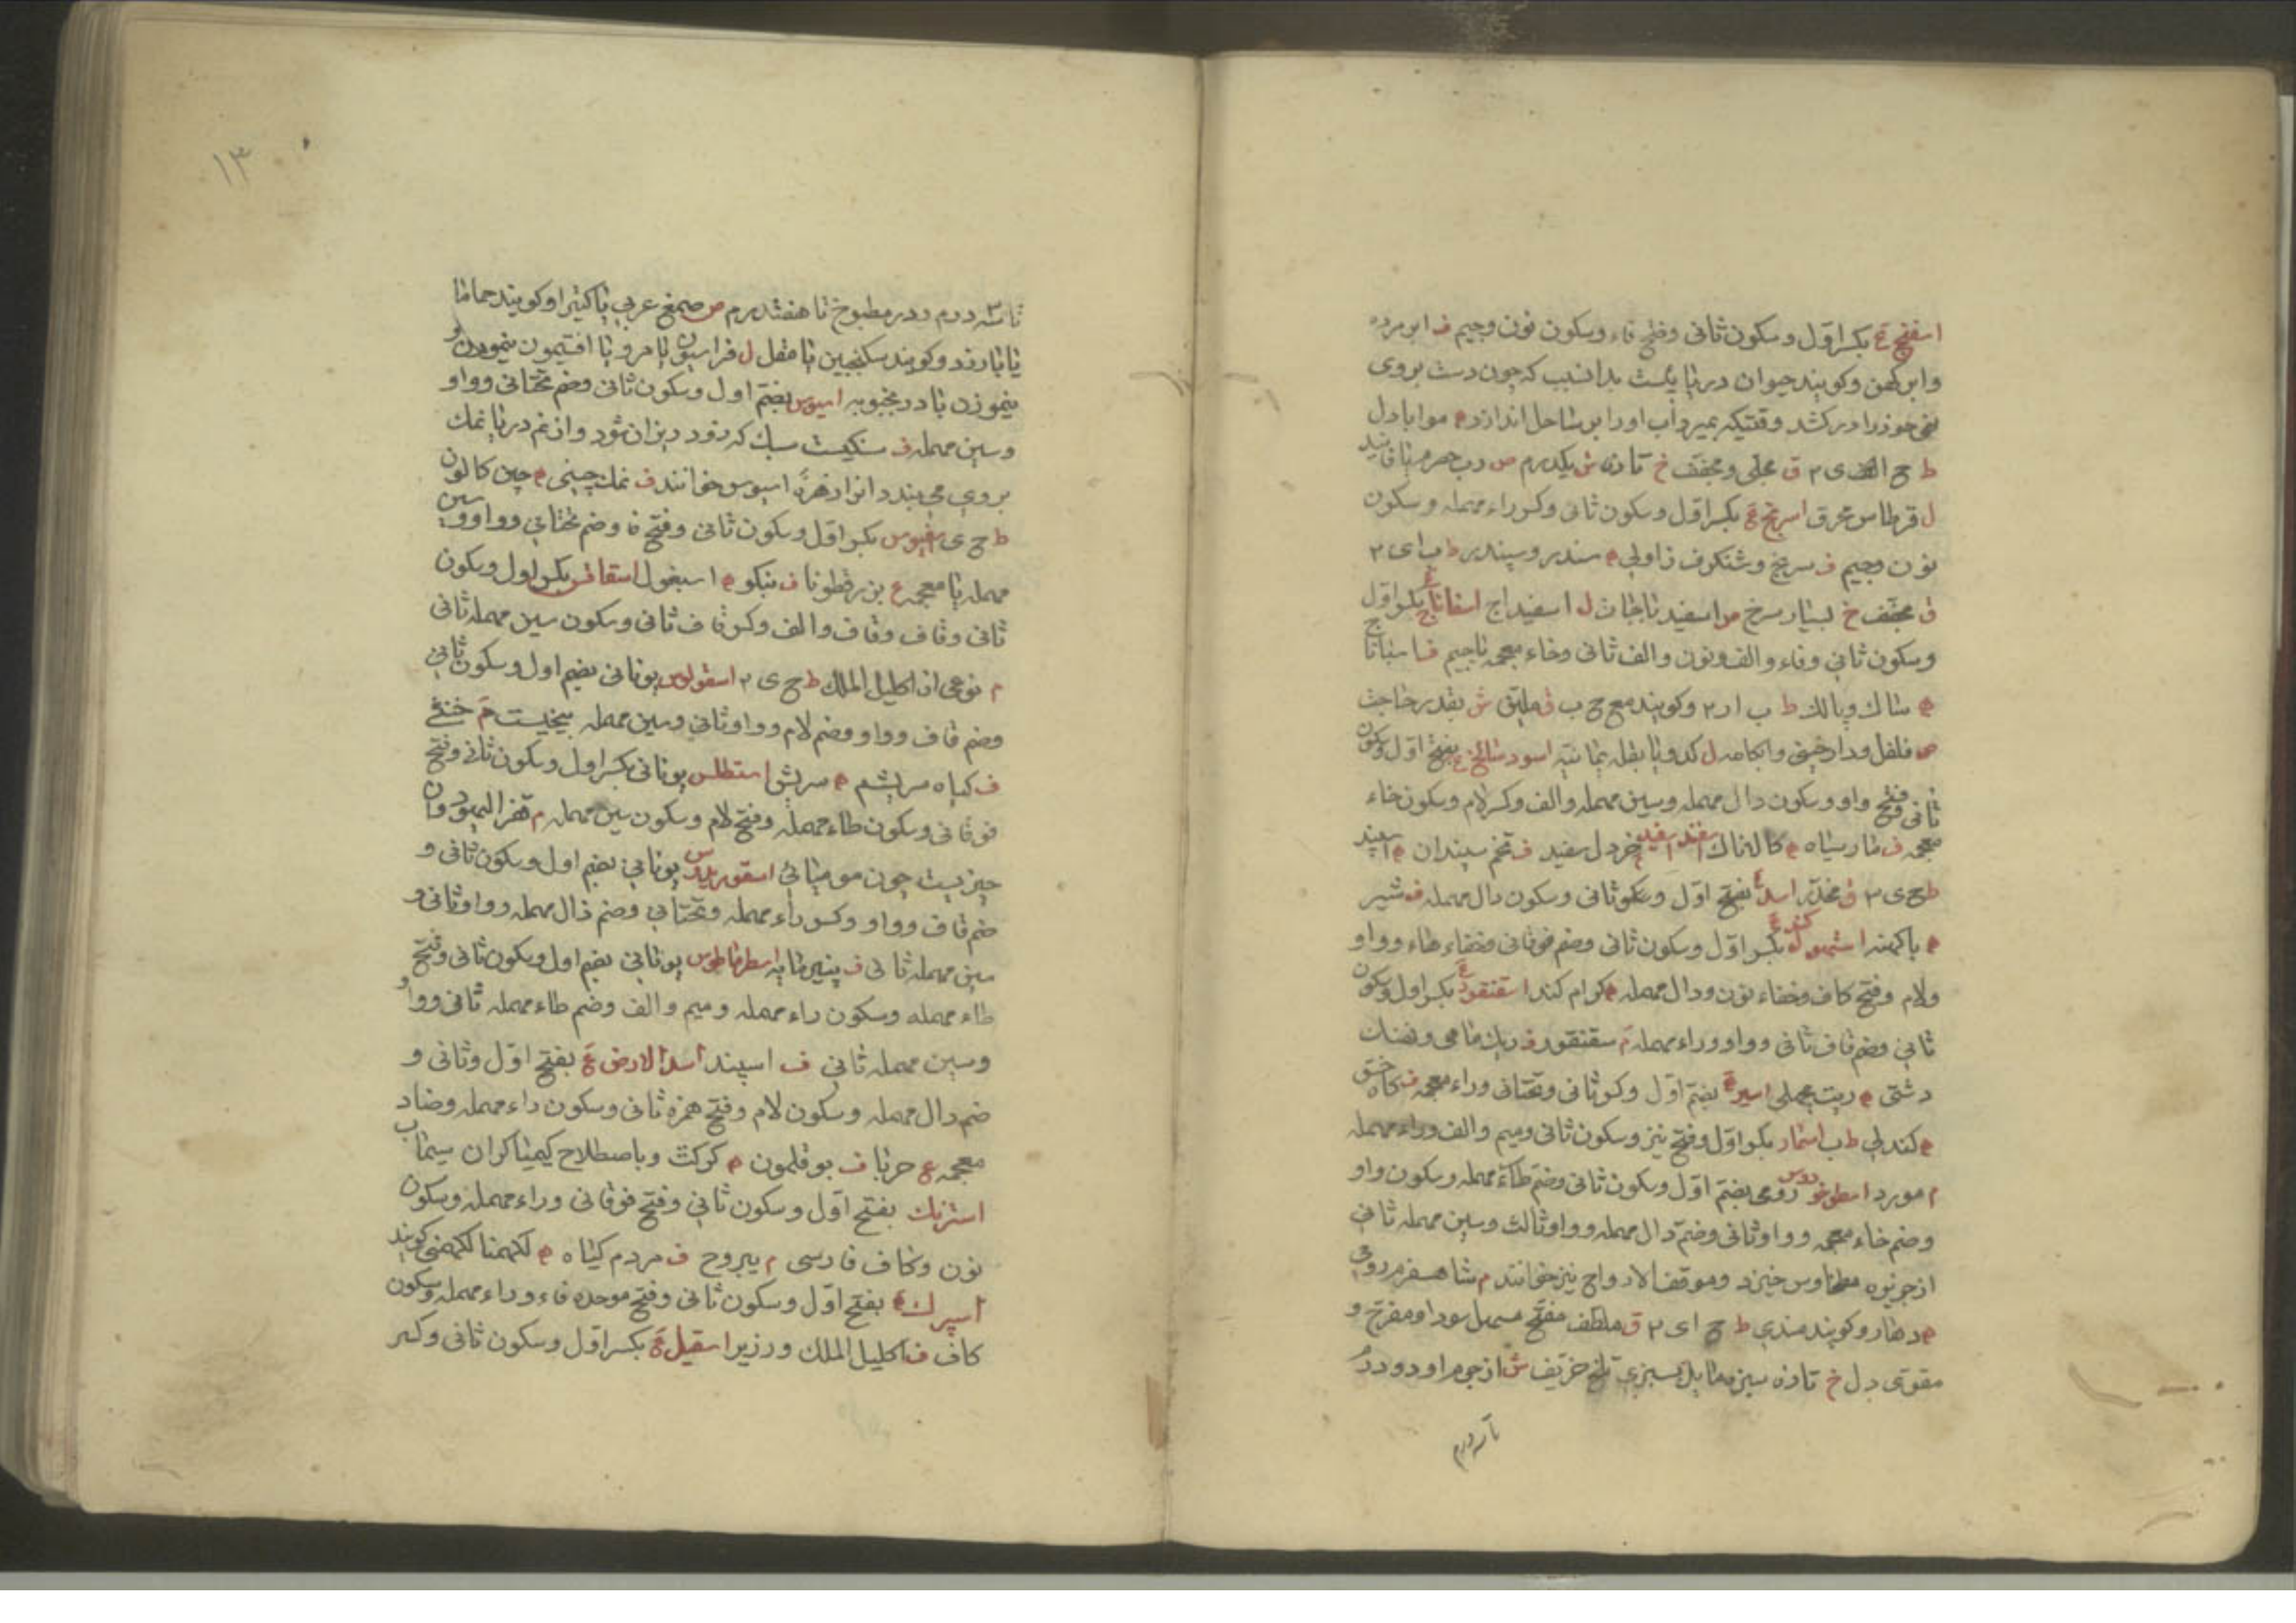 اسفنج ع بکسر اوّل و سکون ثانی و فتح فاء و سکون نون و جیم ف ابر مرده
و ابر کهن و کویند حیوان دریا یست بدانسبب که چون دست بروی
نهی خود را در کشد و قتیکه بمیرد آب او را بر ساحل اندازد ه موا بادل
ط ح الف ی ۳ ق محلی و مجفف خ تازه ش یکدرم ص رب حصرم یا فانید
ل قرطاس محرق اسرنج ع بکسر اوّل و سکون ثانی و کسر راء مهمله و سکون
نون و جیم ف سرنج و شنکرف زاولی ه سندر و سیندر ط ب ای ۲
ق مجفف خ بسیار سرخ ص اسفید باجات ل اسفیداج اسفاناج ع بکسر اوّل
و سکون ثانی و فاء و الف و نون و الف ثانی و خاء معجمه یا جیم ف اسباناخ
ه ساک و پالک ط ب ار ۲ و کویند مع ح ب ق ملیّن ش بقدر حاجت
ص فلفل و دارچینی و آبکامه ل کدو یا بقله یمانیّه اسود سالخ ع بفتح اوّل و سکون
ثانی و فتح واو و سکون دال مهمله و سین مهمله و الف و کسر لام و سکون خاء
معجمه ف مار سیاه ه کالاناک اسفند اسفید م خردل سفید ف تخم سپندان ه اسیند
ط ح ی ۳ ق مخدّر اسد ع بفتح اوّل و سکون ثانی و سکون دال مهمله ف شیر
ه باکهنه اشتهوله کند ع بکسر اوّل و سکون ثانی و ضم فوقانی و خفاء هاء و واو
و لام و فتح کاف و خفاء نون و دال مهمله ه کرام کند اسقنقور ع بکسر اول و سکون
ثانی و ضم قاف ثانی و واو و راء مهمله م سقنقور ف ریک ماهی و نهنک
دشتی ه ریت مچهلی اسیر ه بضم اوّل و کسر ثانی و تحتانی و راء معجمه ف کاه
ه کندلی ط ب اسمار بکسر اوّل و فتح نیز و سکون ثانی و میم و الف و راء مهمله
م مورد اسطوخودوس رومی بضم اوّل و سکون ثانی و ضم طاء مهمله و سکون واو
و ضم خاء معجمه و واو ثانی و ضم دال مهمله و واو ثالث و سین مهمله ثانی
از جزیره خیزد و موقف الارواح نیز خوانند م شاهسفرم رومی
ه دهارو کویند هندی ط ح ای ۲ ق ملطف مفتح مسهل سودا و مفرح و
مقوی دل خ تازه سبز مایل بسبزی تلخ حرّیف ش از جرم او دو درم
تا سه درم
۱۳
تا سه درم و در مطبوخ تا هفتدرم ص صمغ عربی یا کتیرا و کویند حماما
یا بارزد و کویند سکنجبین یا مقل ل فراسیون یا مرو یا افتیمون بنموزن و
بنموزن بادرنجبویه اسیوس بضم اول و سکون ثانی و ضم تحتانی و واو
و سین مهمله ف سنکیست سبک که زود ریزان شود و از نم دریا نمک
بروی می بندد انرا زهرهٔ اسیوس خوانند ف نمک چینی ه چین کا لون
ط ح ی اسفیوس بکسر اوّل و سکون ثانی و فتح فا و ضم تحتانی و واو و سین
مهمله یا معجمه ع بزر قطونا ف بنکو ه اسبغول اسقاقس بکسر اول و سکون
ثانی و قاف و قاف و الف و کسر قاف ثانی و سکون سین مهمله ثانی
م نوعی از اکلیل الملک ط ح ی ۳ اسقولوس یونانی بضم اول و سکون ثانی
و ضم قاف و واو و ضم لام و واو ثانی و سین مهمله بیخیست م خنثی
ف کیاه سریشم ه سریش استطلس یونانی بکسر اول و سکون ثانی و فتح
فوقانی و سکون طاء مهمله و فتح لام و سکون سین مهمله م قفر الیهود و آن
چیزیست چون مومیائی اسقوریدوس یونانی بضم اول و سکون ثانی و
ضم قاف و واو و کسر راء مهمله و تحتانی و ضم دال مهمله و واو ثانی و
سین مهمله ثانی ف پنیر مایه اسطرماطوس یونانی بضم اول و سکون ثانی و فتح
طاء مهمله و سکون راء مهمله و میم و الف و ضم طاء مهمله ثانی و واو
و سین مهمله ثانی ف اسپند اسد الارض ع بفتح اوّل و ثانی و
ضم دال مهمله و سکون لام و فتح همزه ثانی و سکون راء مهمله و ضاد
معجمه ع حربا ف بوقلمون ه کرکت و باصطلاح کیمیا کران سیماب
استرنک بفتح اوّل و سکون ثانی و فتح فوقانی و راء مهمله و سکون
نون و کاف فارسی م یبروح ف مردم کیاه ه لکهمنا لکهمنی کویند
اسپرک ه بفتح اوّل و سکون ثانی و فتح موحده فاء و راء مهمله و سکون
کاف ف اکلیل الملک و زریر اسقیل ع بکسر اوّل و سکون ثانی و کسر